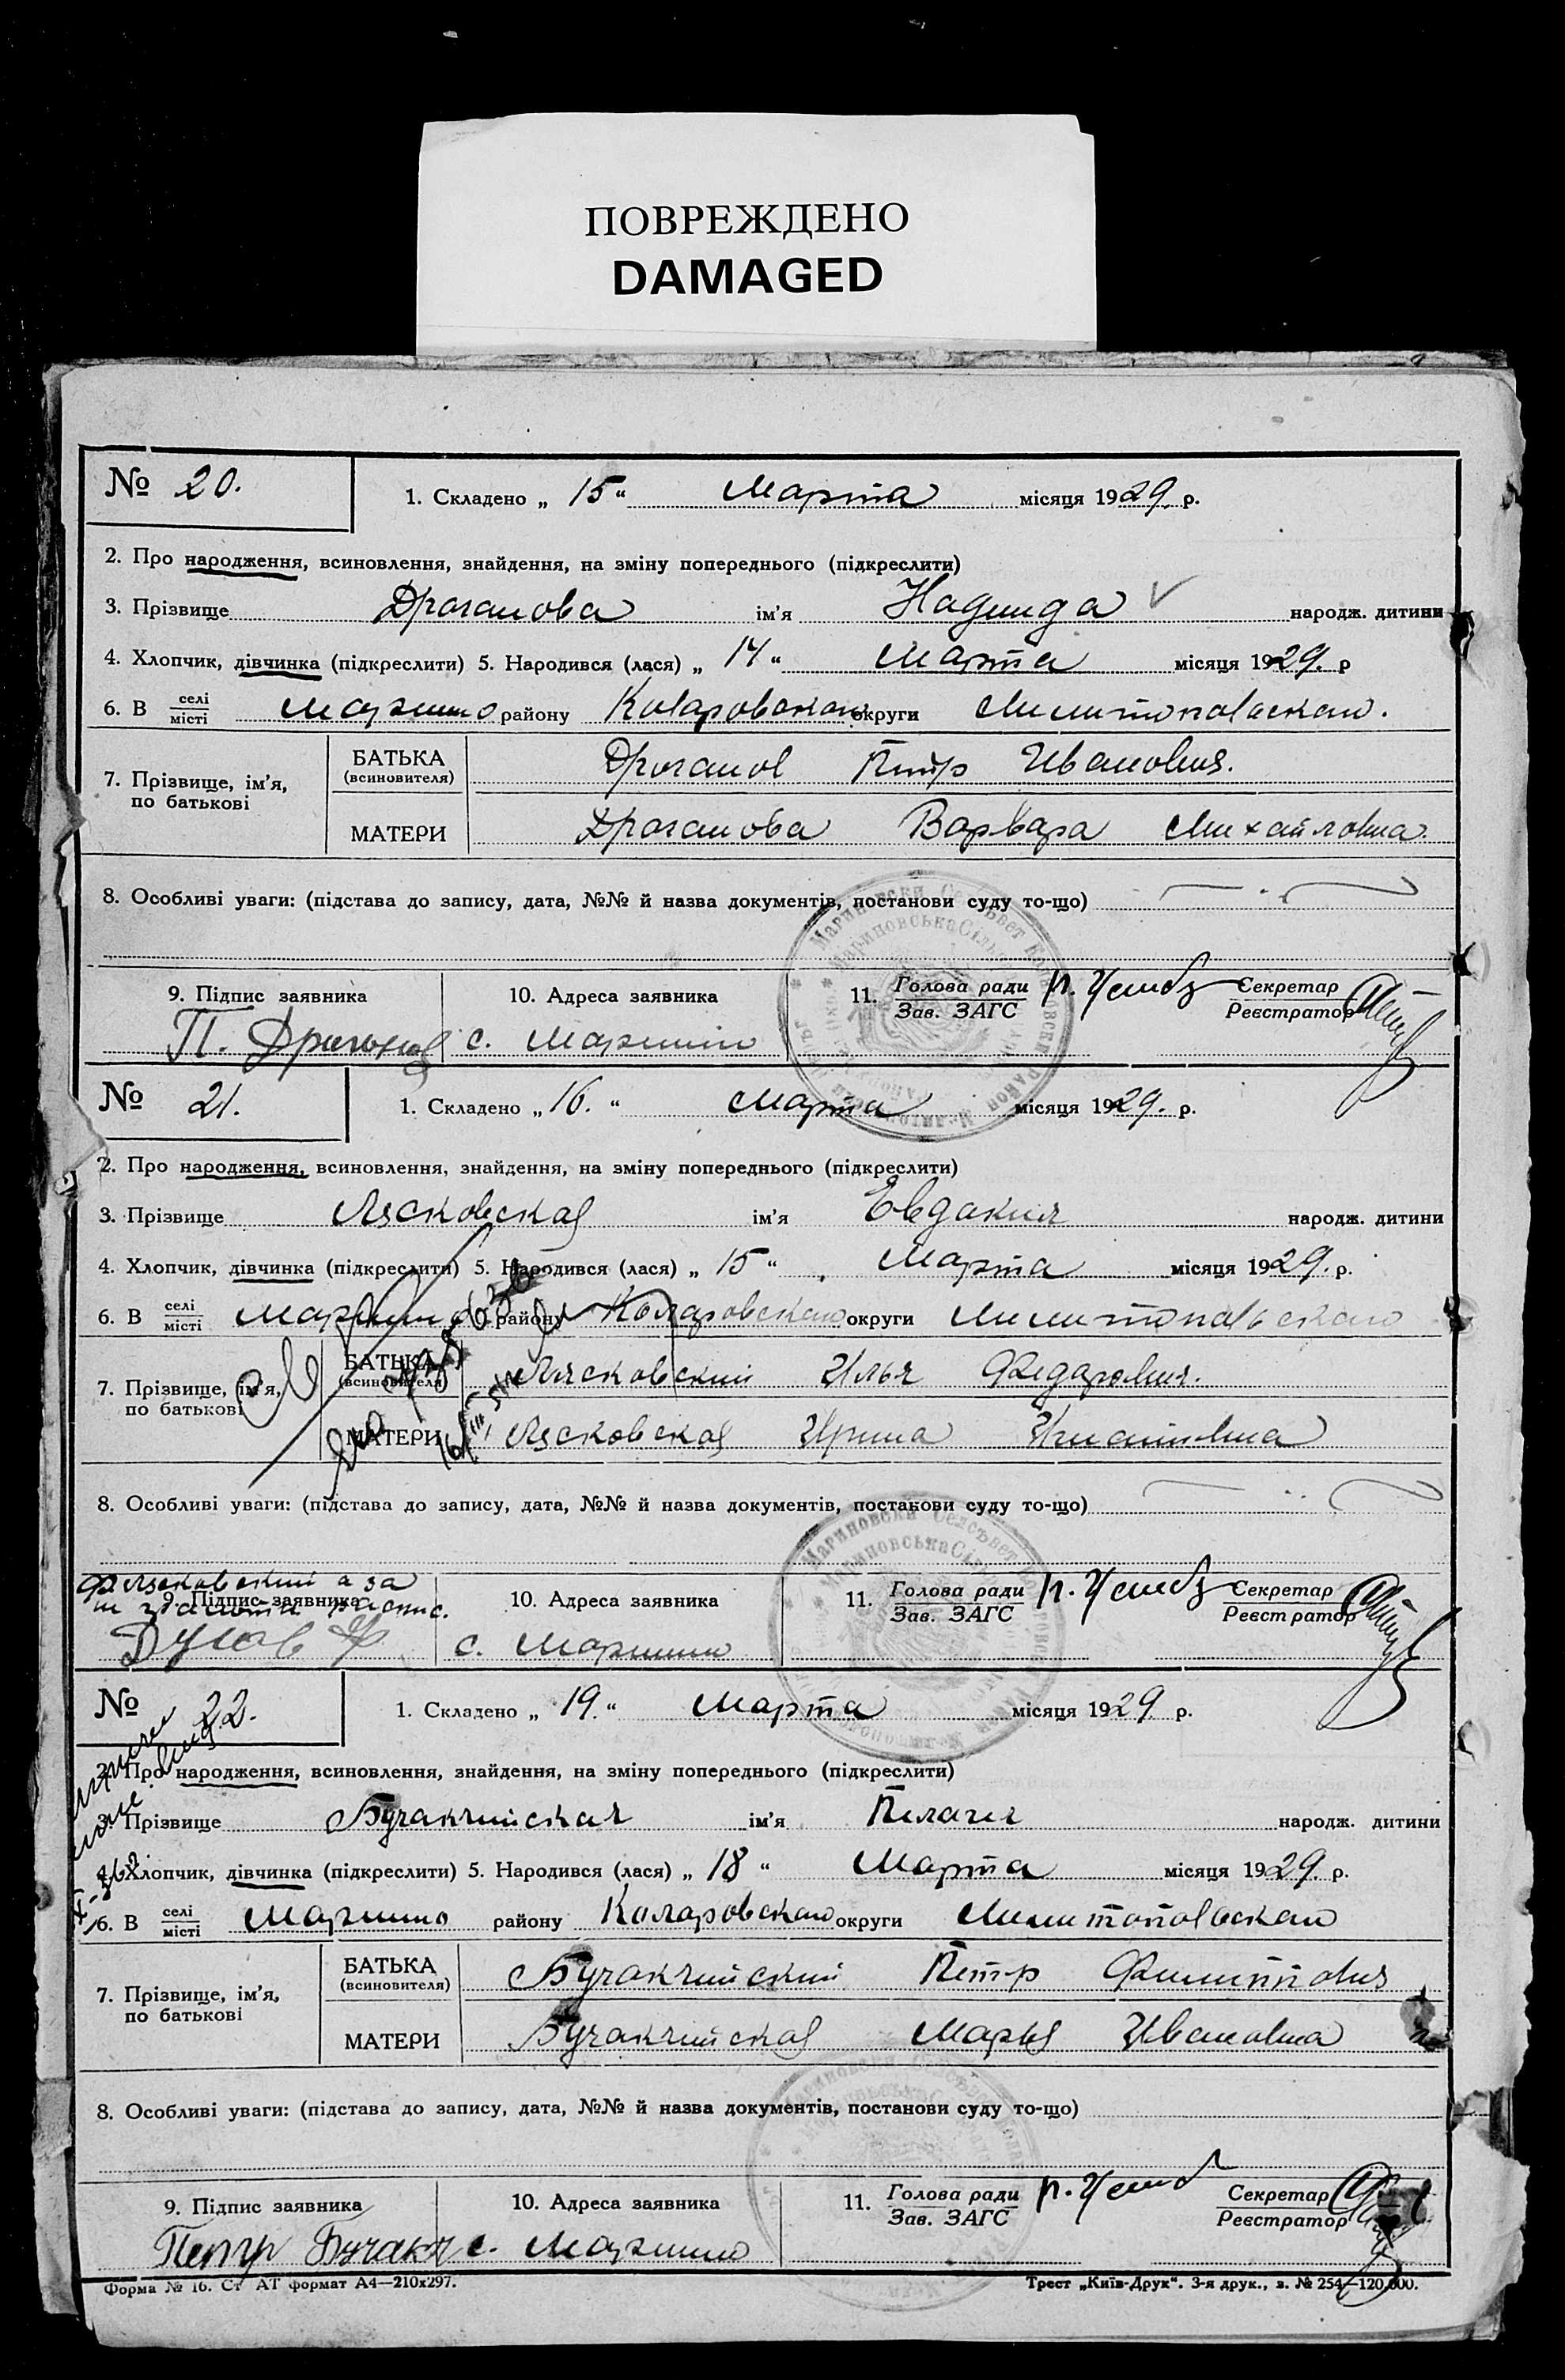 ПОВРЕЖДЕНО
DAMAGED
№ 20.
1. Складено „ 15 “ Марта місяця 1929. р.
2. Про народження, всиновлення, знайдення, на зміну попереднього (підкреслити)
3. Прізвище Драганова ім'я Надежда народж. дитини
4. Хлопчик, дівчинка (підкреслити) 5. Народився (лася) „ 14 “ Марта місяця 1929. р
6. В селі місті Марьино району Коларовского округи Мелитопольского.
7. Прізвище, ім'я, по батькові
БАТЬКА (всиновителя) Драганов Петр Иванович.
МАТЕРИ Драганова Варвара Михайловна.
8. Особливі уваги: (підстава до запису, дата, №№ й назва документів, постанови суду то-що)
9. Підпис заявника 10. Адреса заявника 11. Голова ради Зав. ЗАГС Секретар Реєстратор
П. с. Марьино
№ 21.
1. Складено „ 16. “ Марта місяця 1929. р.
2. Про народження, всиновлення, знайдення, на зміну попереднього (підкреслити)
3. Прізвище Лясковская ім'я Евдакия народж. дитини
4. Хлопчик, дівчинка (підкреслити) 5. Народився (лася) „ 15 “ Марта місяця 1929. р.
6. В селі місті Марьино району Коларовского округи Мелитопольского
7. Прізвище, ім'я, по батькові
БАТЬКА (всиновителя) Лясковский Илья Федарович.
МАТЕРИ Лясковская Ирина
8. Особливі уваги: (підстава до запису, дата, №№ й назва документів, постанови суду то-що)
Лясковский а за
9. Підпис заявника 10. Адреса заявника 11. Голова ради Зав. ЗАГС Секретар Реєстратор
с. Марьино
№ 22.
1. Складено „ 19. “ Марта місяця 1929 р.
2. Про народження, всиновлення, знайдення, на зміну попереднього (підкреслити)
3. Прізвище Бучакчийская ім'я Пелагея народж. дитини
4. Хлопчик, дівчинка (підкреслити) 5. Народився (лася) „ 18 “ Марта місяця 1929. р.
6. В селі місті Марьино району Коларовского округи Мелитопольского
7. Прізвище, ім'я, по батькові
БАТЬКА (всиновителя) Бучакчийский Петр Филиппович
МАТЕРИ Бучакчийская Марья Ивановна
8. Особливі уваги: (підстава до запису, дата, №№ й назва документів, постанови суду то-що)
9. Підпис заявника 10. Адреса заявника 11. Голова ради Зав. ЗАГС Секретар Реєстратор
Петр с. Марьино
Форма № 16. Ст АТ формат А4—210х297.
Трест „Київ-Друк“. 3-я друк., з. № 254—120,000.